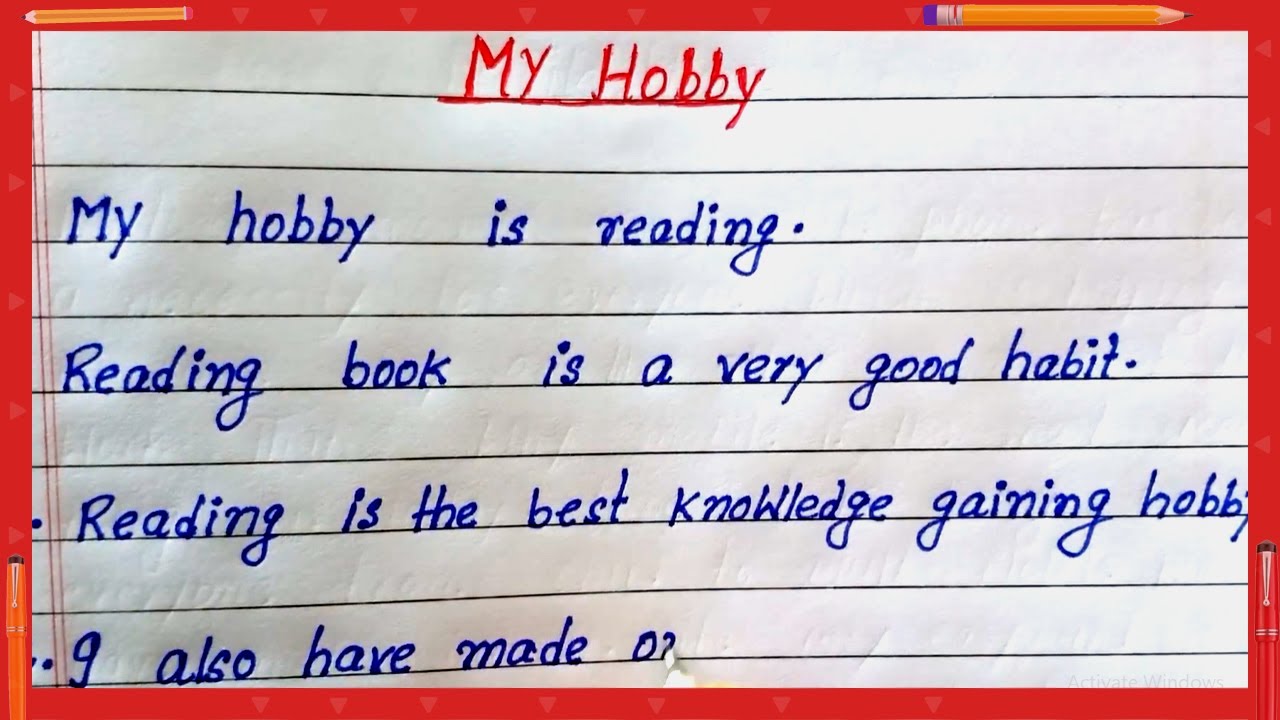 My Hobby
My hobby is reading.
Reading book is a very good habit.
. Reading is the best knowledge gaining hobby
.. I also have made
Activate Windows